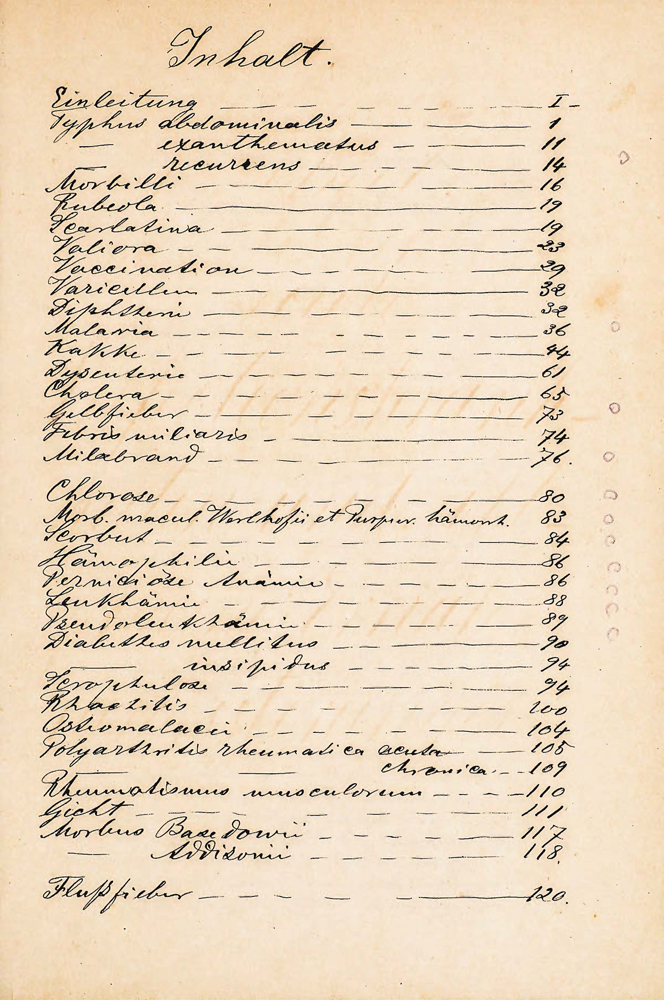 Inhalt.
Einleitung — — — — — — I-
Typhus abdominalis — — — 1
— exanthematus — — — 11
— recurrens — — — — 14
Morbilli — — — — — — 16
Rubeola — — — — — 19
Scarlatina — — — — — 19
Valiora — — — — — — 23
Vaccination — — — — — 29
Varicellen — — — — — 32
Diphtherie — — — — — 32
Malaria — — — — — — 36
Kakke — — — — — — 44
Dysenterie — — — — — 61
Cholera — — — — — — 65
Gelbfieber — — — — — 73
Febris miliaris — — — — 74
Milzbrand — — — — — 76.
Chlorose — — — — — — 80
Morb. macul. Werlhofii et Purpur. hämorrh. 83
Scorbut — — — — — — 84
Hämophilie — — — — — 86
Perniciöse Anämie — — — — 86
Leukhämie — — — — — 88
Pseudoleukhämie — — — — 89
Diabethes mellitus — — — — 90
— insipidus — — — — 94
Scrophulose — — — — — 94
Rhachitis — — — — — 100
Osteomalacie — — — — — 104
Polyarthritis rheumatica acuta — — 105
— chronica. — — 109
Rheumatismus musculorum — — — 110
Gicht — — — — — — 111
Morbus Basedowii — — — — 117
— Addisonii — — — — 118.
Flußfieber — — — — — 120.